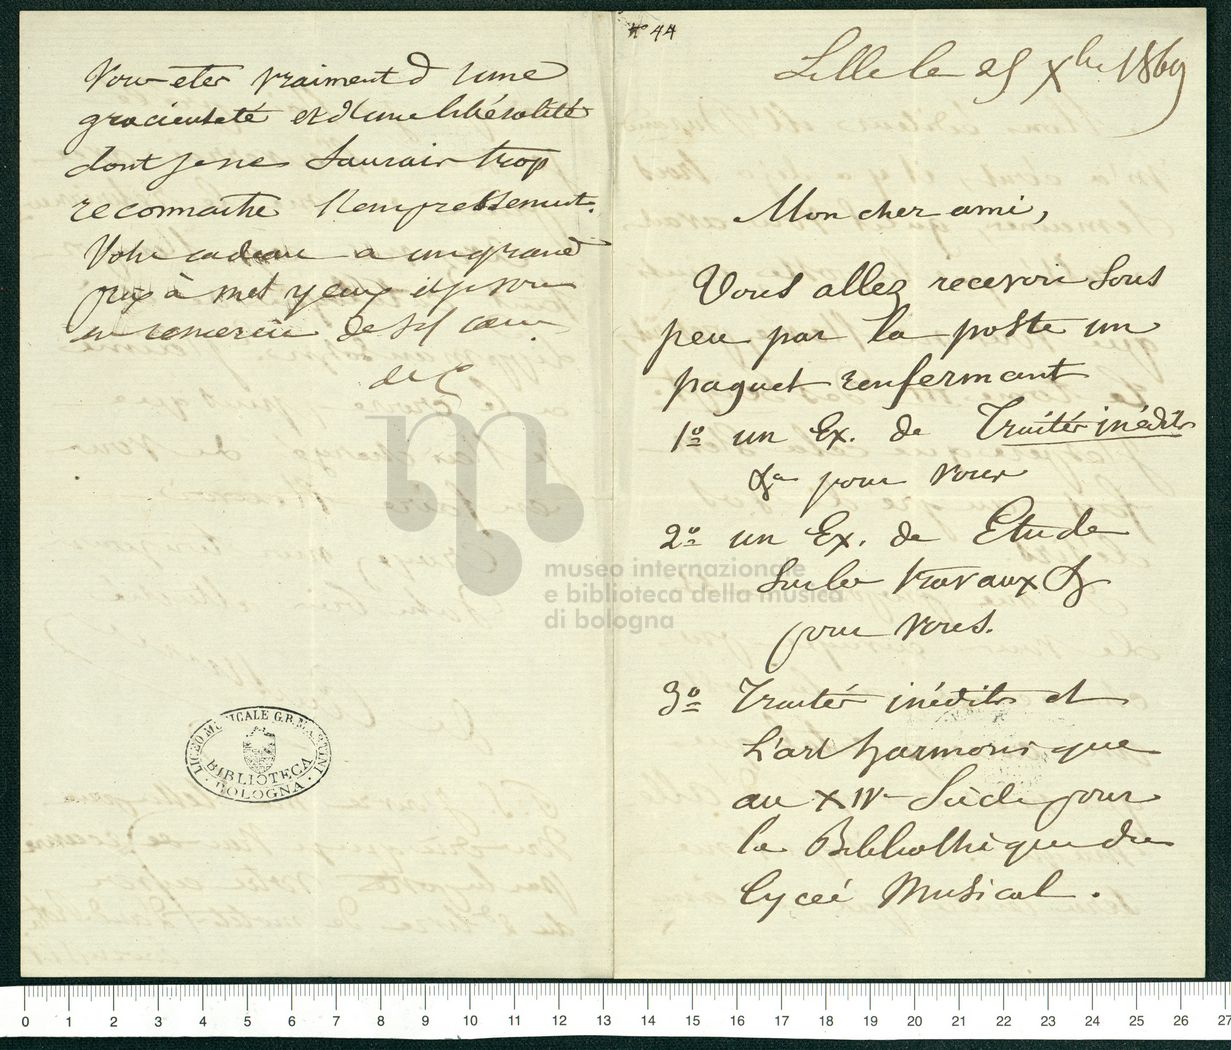 Vous etes vraiment d'une
gracieuseté et d'une libéralité
dont je ne saurais trop
reconnaitre l'empressement.
Votre cadeau a un grand
prix à mes yeux et je vous
en remercie de
de C
LICEO MUSICALE G.B. MARTINI
BIBLIOTECA
BOLOGNA
N° 44
Lille le 25 Xbre 1869
Mon cher ami,
Vous allez recevoir sous
peu par la poste un
paquet renfermant
1º un Ex. de Traités inédits
& pour vous
2º un Ex. de Etude
sur les travaux &
pour vous.
3º Traités inédits et
L'art harmonique
au XIVe Siècle pour
la Bibliothèque du
Lycée Musical.
museo internazionale
e biblioteca della musica
di bologna
0 1 2 3 4 5 6 7 8 9 10 11 12 13 14 15 16 17 18 19 20 21 22 23 24 25 26 27